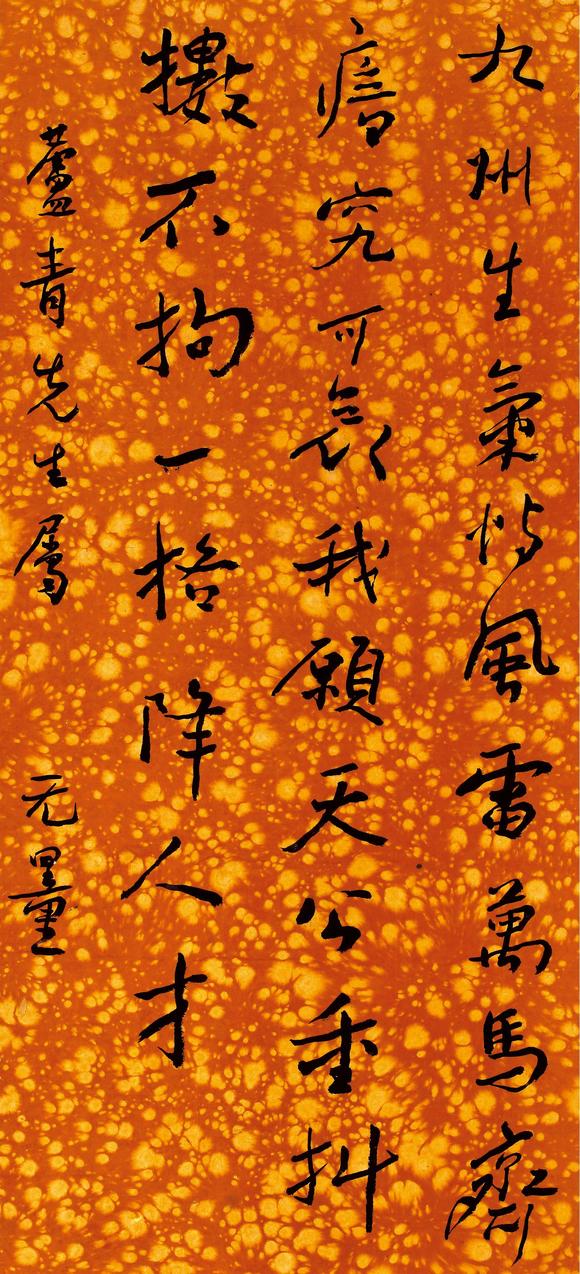 九州生氣恃風雷萬馬齊
瘖究可哀我願天公重抖
擻不拘一格降人才
蘆青先生屬 无量